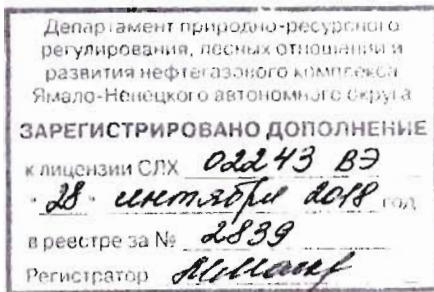 Департамент природно-ресурсного
регулирования, лесных отношений и
развития нефтегазового комплекса
Ямало-Ненецкого автономного округа
ЗАРЕГИСТРИРОВАНО ДОПОЛНЕНИЕ
к лицензии СЛХ 02243 ВЭ
"28" сентября 2018 год
в реестре за № 2839
Регистратор